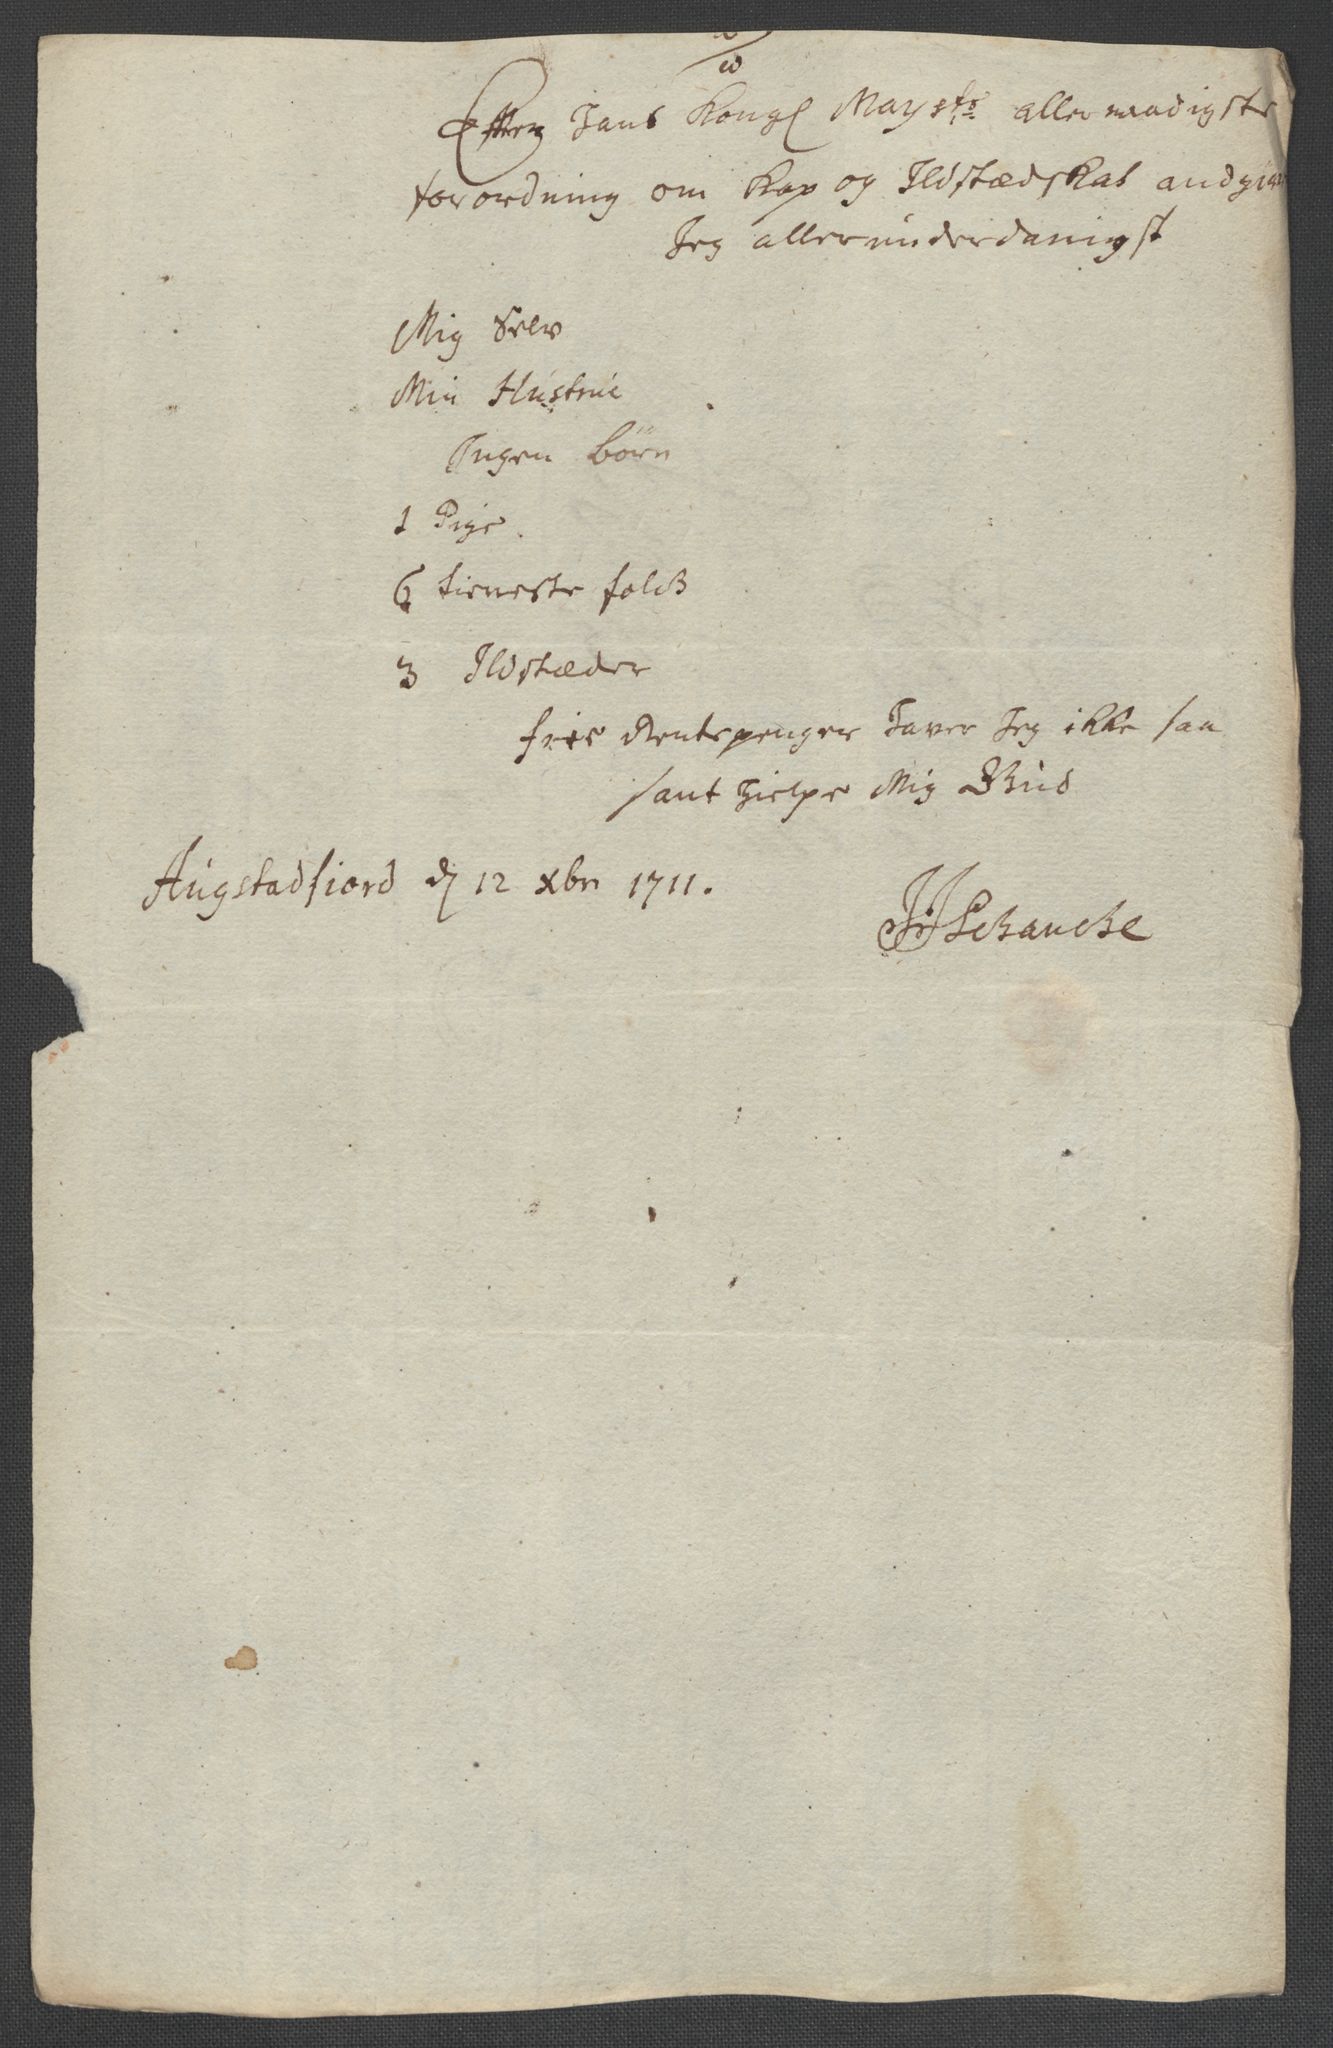 Efter hans Kongl Mayts allernaadigste
forordning om Kop og Ildstædskat andgiver
Jeg allerunderdanigst
Mig Selv
Min Hustrue
Ingen børn
1 Pige
6 tieneste folck
3 Ildstæder
frie Rentepenger haver Jeg ikke saa
sant hielpe Mig Gud
Augstadfiord d 12 xbr 1711.
JJSchancke